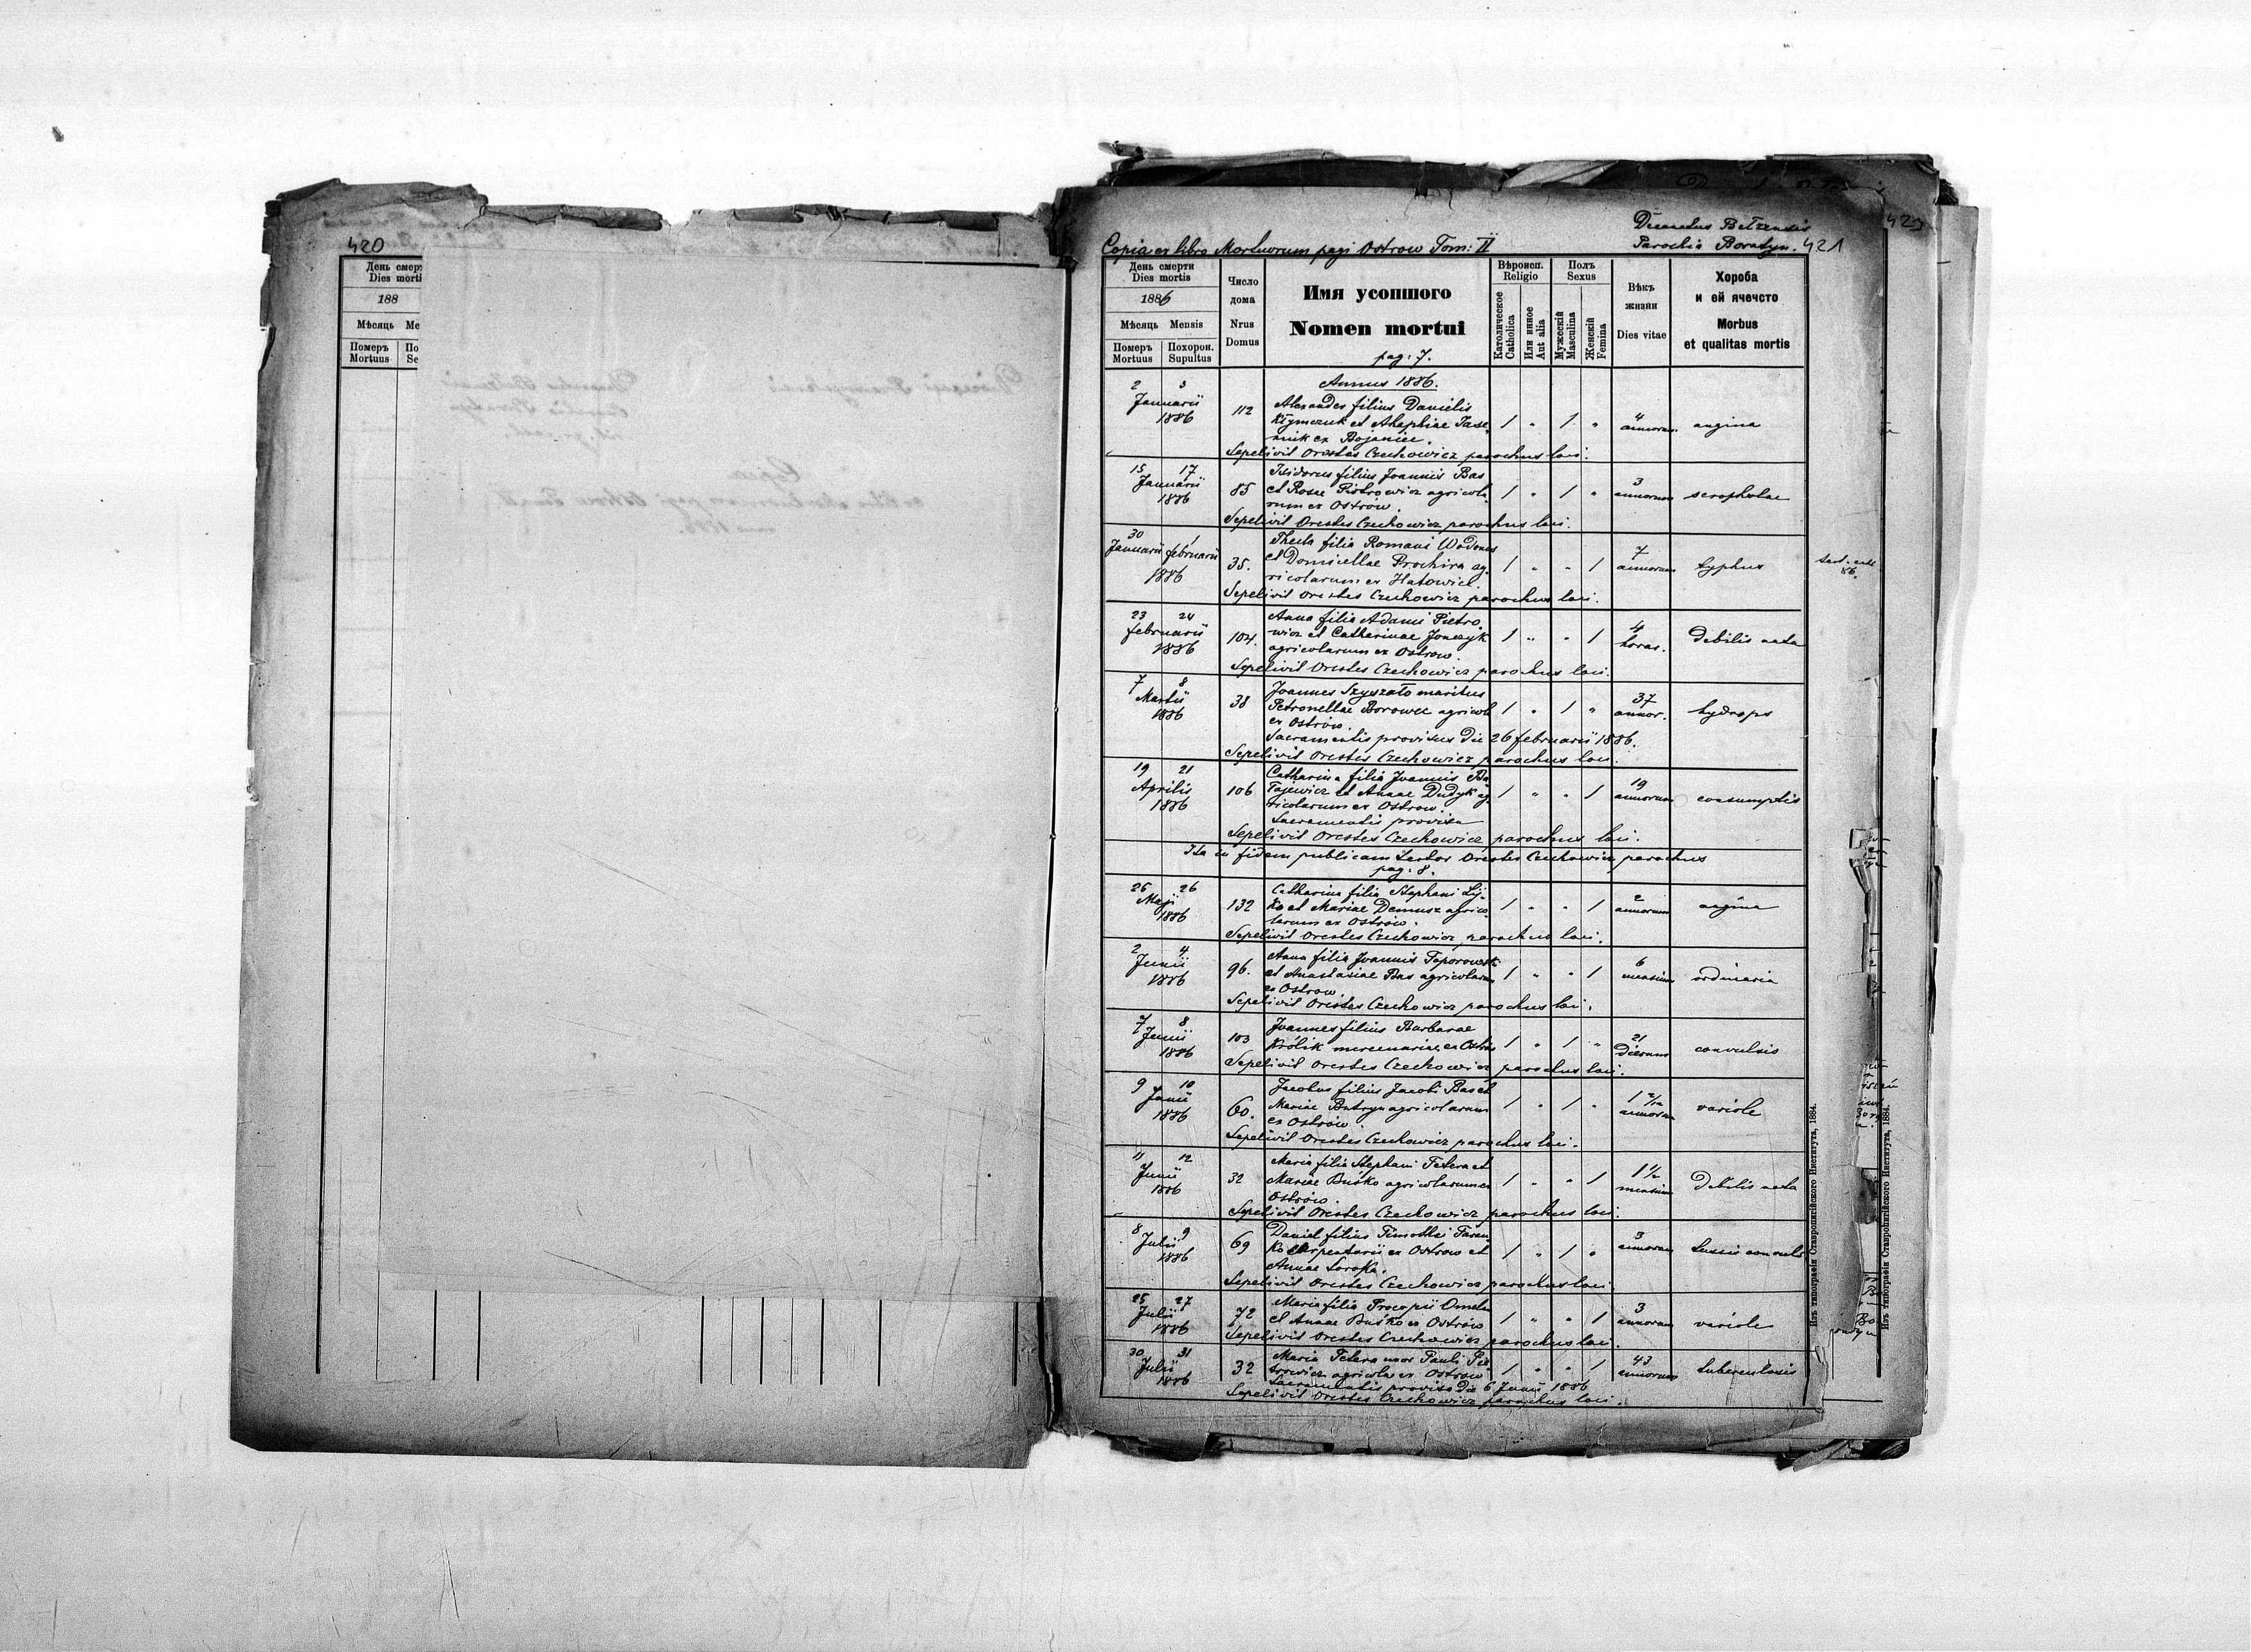 420
День смерт
Dies morti
188
Мѣсяць Ме
Померъ По
Mortuus Se
Decanatus Bełzensis
Copia ex libro Mortuorum pagi Ostrow Tom: II
Parochia Boratyn. 421
423
День смерти
Dies mortis
1886
Мѣсяць Mensis
Померъ Похорон.
Mortuus Sepultus
Число
дома
Nrus
Domus
Имя усопшого
Nomen mortui
pag: 7.
Вѣроисп.
Religio
Католическое
Catholica
Или инное
Aut alia
Полъ
Sexus
Мужескій
Masculina
Женскій
Femina
Вѣкъ
жизни
Dies vitae
Хороба
и ей ячество
Morbus
et qualitas mortis
Annus 1886.
2 3
Januarii
1886
112
Alexander filius Danielis
Klymczuk et Ahaphiae Jase-
nik ex Bojaniec.
1 " 1 "
4
annorum
angina
Sepelivit Orestes Czechowicz parochus loci.
15 17
Januarii
1886
85
Isidorus filius Joannis Bas
et Rosae Pietrowicz agricola-
rum ex Ostrów.
1 " 1 "
3
annorum
scrophulae
Sepelivit Orestes Czechowicz parochus loci.
30 1
Januarii februarii
1886
35.
Thecla filia Romani
et Domicellae Prochira ag-
ricolarum ex Hatowice.
1 " " 1
7
annorum
typhus
Sepelivit Orestes Czechowicz parochus loci.
23 24
februarii
1886
104.
Anna filia Adami Pietro-
wicz et Catharinae Jonczyk
agricolarum ex Ostrow.
1 " " 1
4
horas.
debilis nata
Sepelivit Orestes Czechowicz parochus loci.
7 8
Martii
1886
38
Joannes Szyszato maritus
Petronellae Borowec agricola
ex Ostrów.
1 " 1 "
37
annor.
hydrops
Sacramentis provisus die 26 februarii 1886.
Sepelivit Orestes Czechowicz parochus loci.
19 21
Aprilis
1886
106
Catharina filia Joannis Ba-
łajewicz et Annae Dudyk ag-
ricolarum ex Ostrow.
Sacramentis provisa
1 " " 1
19
annorum
consumptis
Sepelivit Orestes Czechowicz parochus loci.
Ita in fidem publicam testor Orestes Czechowicz parochus
pag: 8.
25 26
Maji
1886
132
Catharina filia Stephani Lij-
ko et Mariae Demusz agrico-
larum ex Ostrów.
1 " " 1
2
annorum
angina
Sepelivit Orestes Czechowicz parochus loci.
2 4
Junii
1886
96.
Anna filia Joannis Toporowski
et Anastasiae Bas agricolarum
ex Ostrow.
1 " " 1
6
mensium
ordinaria
Sepelivit Orestes Czechowicz parochus loci.
7 8
Junii
1886
103
Joannes filius Barbarae
Królik mercenariae ex Ostrów
1 " 1 "
21
dierum
convulsis
Sepelivit Orestes Czechowicz parochus loci.
9 10
Junii
1886
60.
Jacobus filius Jacobi Bas et
Mariae Butryn agricolarum
ex Ostrów.
1 " 1 "
annorum
variole
Sepelivit Orestes Czechowicz parochus loci.
11 12
Junii
1886
32
Maria filia Stephani Tetera et
Mariae Buśko agricolarum ex
Ostrów.
1 " " 1
1 1/2
mensium
debilis nata
Sepelivit Orestes Czechowicz parochus loci.
8 9
Julii
1886
69
Daniel filius Timothei Taren-
ko carpentarii ex Ostrow et
Annae Soroka.
1 " 1 "
3
annorum
tussis convuls
Sepelivit Orestes Czechowicz parochus loci.
25 27
Julii
1886
72
Maria filia Procopii Omelan
et Annae Buśko ex Ostrów
1 " " 1
3
annorum
variole
Sepelivit Orestes Czechowicz parochus loci.
30 31
Julii
1886
32
Maria Tetera uxor Pauli Pie-
trowicz agricolae ex Ostrow
1 " " 1
43
annorum
tuberculosis
Sacramentis provisa die 6 Junii 1886
Sepelivit Orestes Czechowicz parochus loci.
Изъ типографіи Ставропигійского Института, 1884.
Изъ типографіи Ставропигійского Института, 1884.